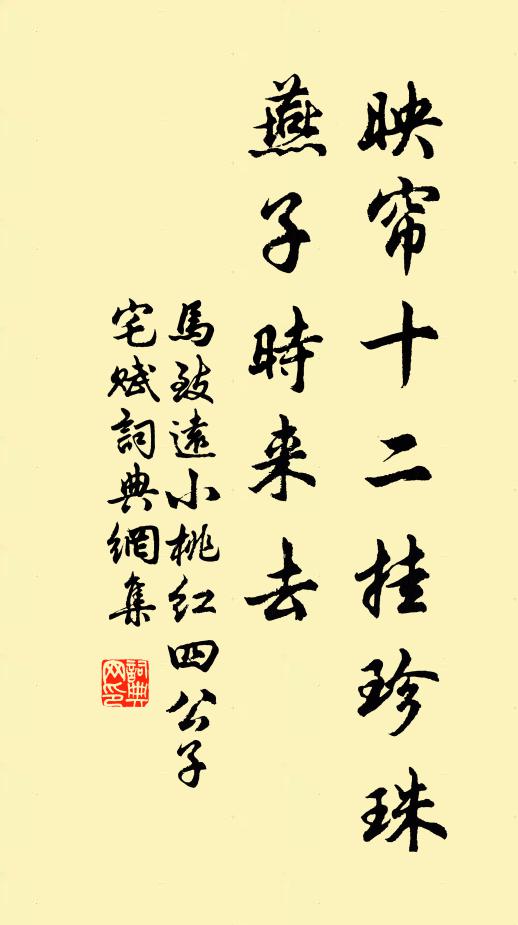 映帘十二挂珍珠
燕子時来去
馬致遠小桃红四公子
宅赋詞典網集
詞典网印